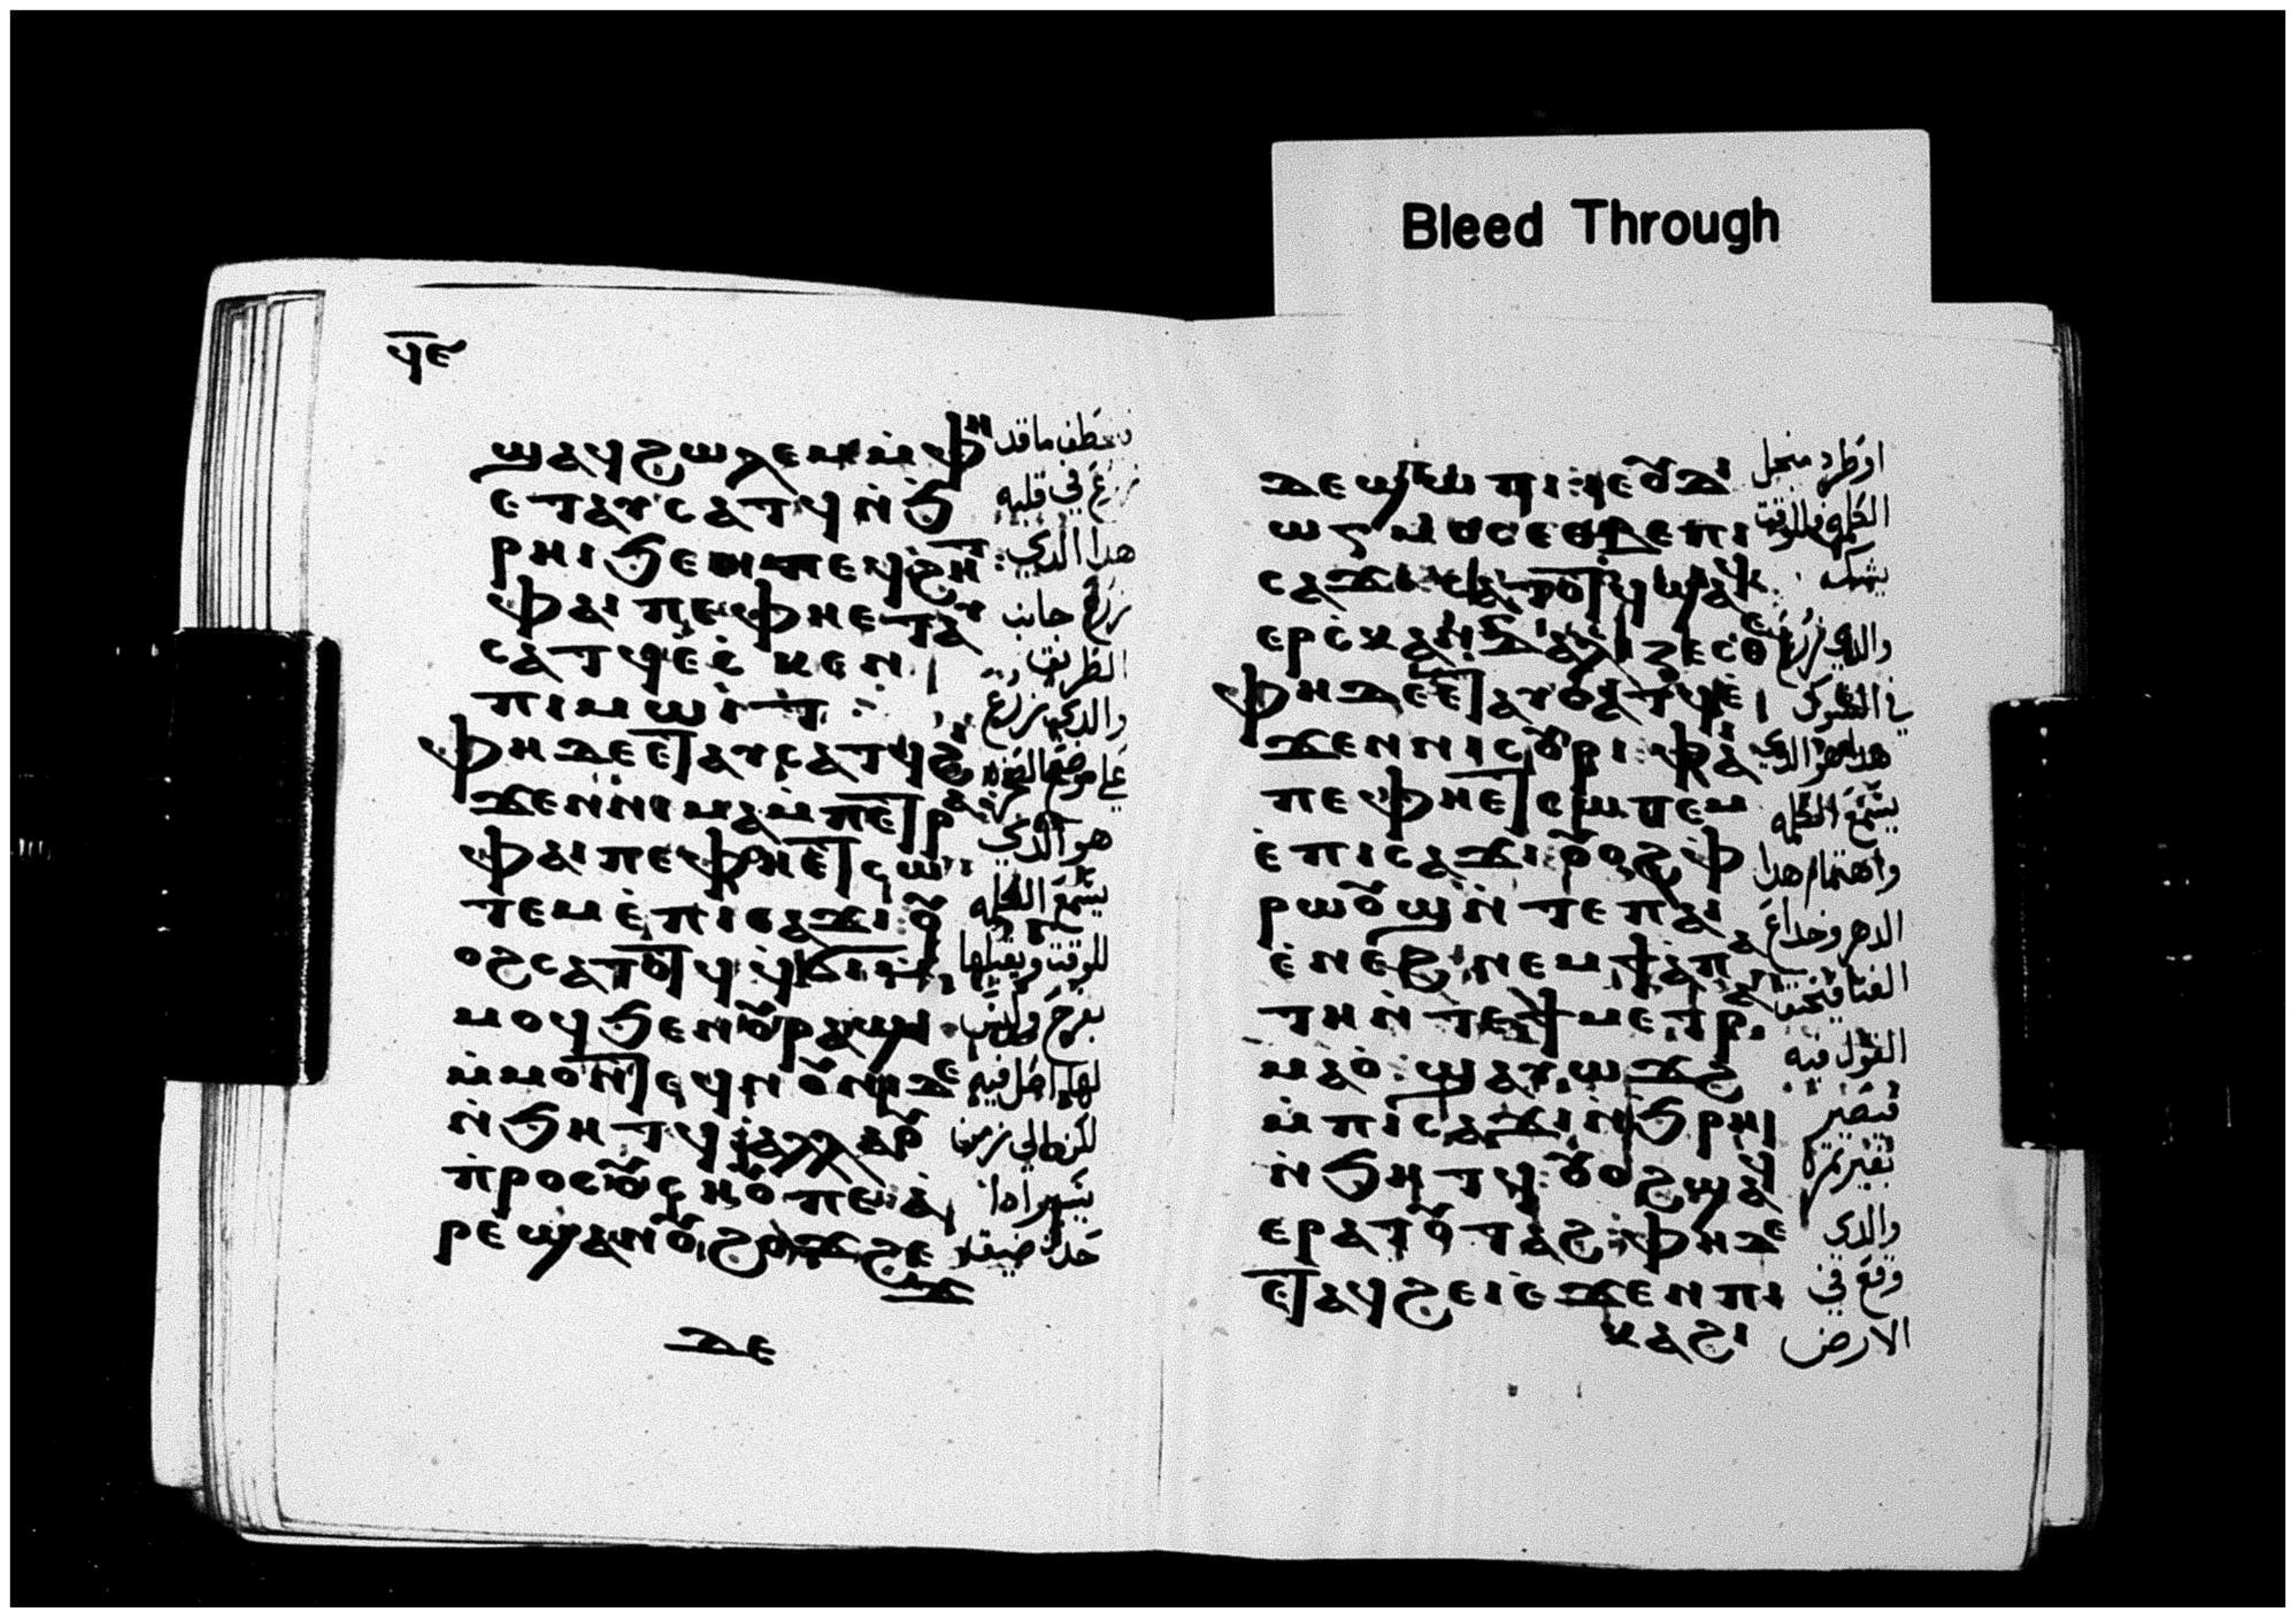 ϥⲉ
ϣⲁϥϩⲱⲗⲉⲙ ⲙ̇ⲫⲏ
ⲉⲧⲁⲩⲥⲁⲧϥ ⲛ̇ϧ
ⲣⲏⲓ ϧⲉⲛ ⲡⲉϥϩⲏⲧ:
ⲫⲁⲓ ⲡⲉ ⲫⲏⲉⲧⲁⲩ
ⲥⲁⲧϥ ⲉ̇ⲥ̇ⲕⲉⲛ
ⲡⲓⲙⲱⲓⲧ:
ⲫⲏ ⲇⲉ ⲉⲧⲁⲩⲥⲁⲧϥ ϩⲓ
ϫⲉⲛ ⲛⲓⲙⲁ ⲙ̇ⲡⲉⲧⲣⲁ:
ⲫⲁⲓ ⲡⲉ ⲫⲏ ⲉⲧⲥⲱ
ⲧⲉⲙ ⲉ̇ⲡⲓⲥⲁϫⲓ: ⲟⲩ
ⲟϩ ⲥⲁⲧⲟⲧϥ ϥ̇ϭⲓ ⲙ̇
ⲙⲟϥ ϧⲉⲛ ⲟⲩⲣⲁϣⲓ
ⲙ̇ⲙⲟⲛⲧⲉϥ ⲛⲟⲩⲛⲓ ⲇⲉ
ⲛ̇ϧⲏⲧϥ ⲁⲗⲗⲁ ⲟⲩ
ⲡ̇ⲣⲟⲥⲟⲩⲥⲏⲟⲩ ⲡⲉ ⲁ
ⲣⲉϣⲁⲛ ⲟⲩϩⲟϫϩⲉ
ϫ
ⲇⲉ
فيخطف ما قد
زرع في قلبه
هدا الدي
زرع جانب
الطريق
والدي زرع
علي موضع الصخره
هو الدي
يسمع الكلمه
للوقت ويقبلها
بفرح وليس
لها اصل فيه
لكن الي زمن
حدث ضيقه
ⲇⲉ ϣⲱⲡⲓ: ⲓⲉ ⲟⲩⲇⲓ
ⲱⲅⲙⲟⲥ ⲉⲑⲃⲉ ⲡⲓ
ⲥⲁϫⲓ ⲥⲁⲧⲟⲧϥ ϣⲁϥ
ⲉⲣⲥ̇ⲕⲁⲛⲇⲁⲗⲓⲍⲉⲥⲑⲉ
ⲫⲏ ⲇⲉ ⲉⲧⲁⲩⲥⲁⲧϥ ⲉ̇
ϫⲉⲛ ⲛⲓⲥⲟⲩⲣⲓ: ⲫⲁⲓ
ⲡⲉ ⲫⲏ ⲉⲧⲥⲱⲧⲉⲙ
ⲉ̇ⲡⲓⲥⲁϫⲓ: ⲟⲩⲟϩ ⲫ
ⲣⲱⲟⲩϣ ⲛ̇ⲧⲉ ⲡⲁⲓ
ⲉ̇ⲛⲉϩ ⲛⲉⲙ ϯⲁⲡⲁ
ⲧⲏ ⲛ̇ⲧⲉ ϯⲙⲉⲧⲣⲁ
ⲙⲁⲟ: ϣⲁⲩⲱϫϩ
ⲙ̇ⲡⲓⲥⲁϫⲓ ⲛ̇ϧⲣⲏⲓ
ⲛ̇ϧⲏⲧϥ: ⲟⲩⲟϩ ϣⲁϥ
ⲉⲣⲁⲧⲟⲩⲧⲁϩ: ⲫⲏ ⲇⲉ
ⲉⲧⲁϥϩⲉⲓ ⲉ̇ϫⲉⲛ ⲡⲓ
ⲕⲁϩⲓ
او طرد من اجل
الكلمه فللوقت
يشك
والدي زرع
في الشوك
هدا هو الدي
يسمع الكلمه
واهتمام هدا
الدهر وخداع
الغنا فيخنق
القول فيه
فيصير
بغير ثمره
والدي
وقع في
الارض
Bleed Through